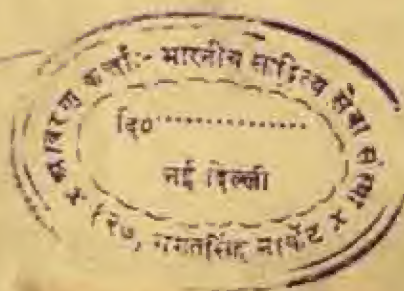 वितरण कर्त्ता:- भारतीय साहित्य सेवा संस्था
दि०...............
नई दिल्ली
× १२७, भगतसिंह मार्केट ×